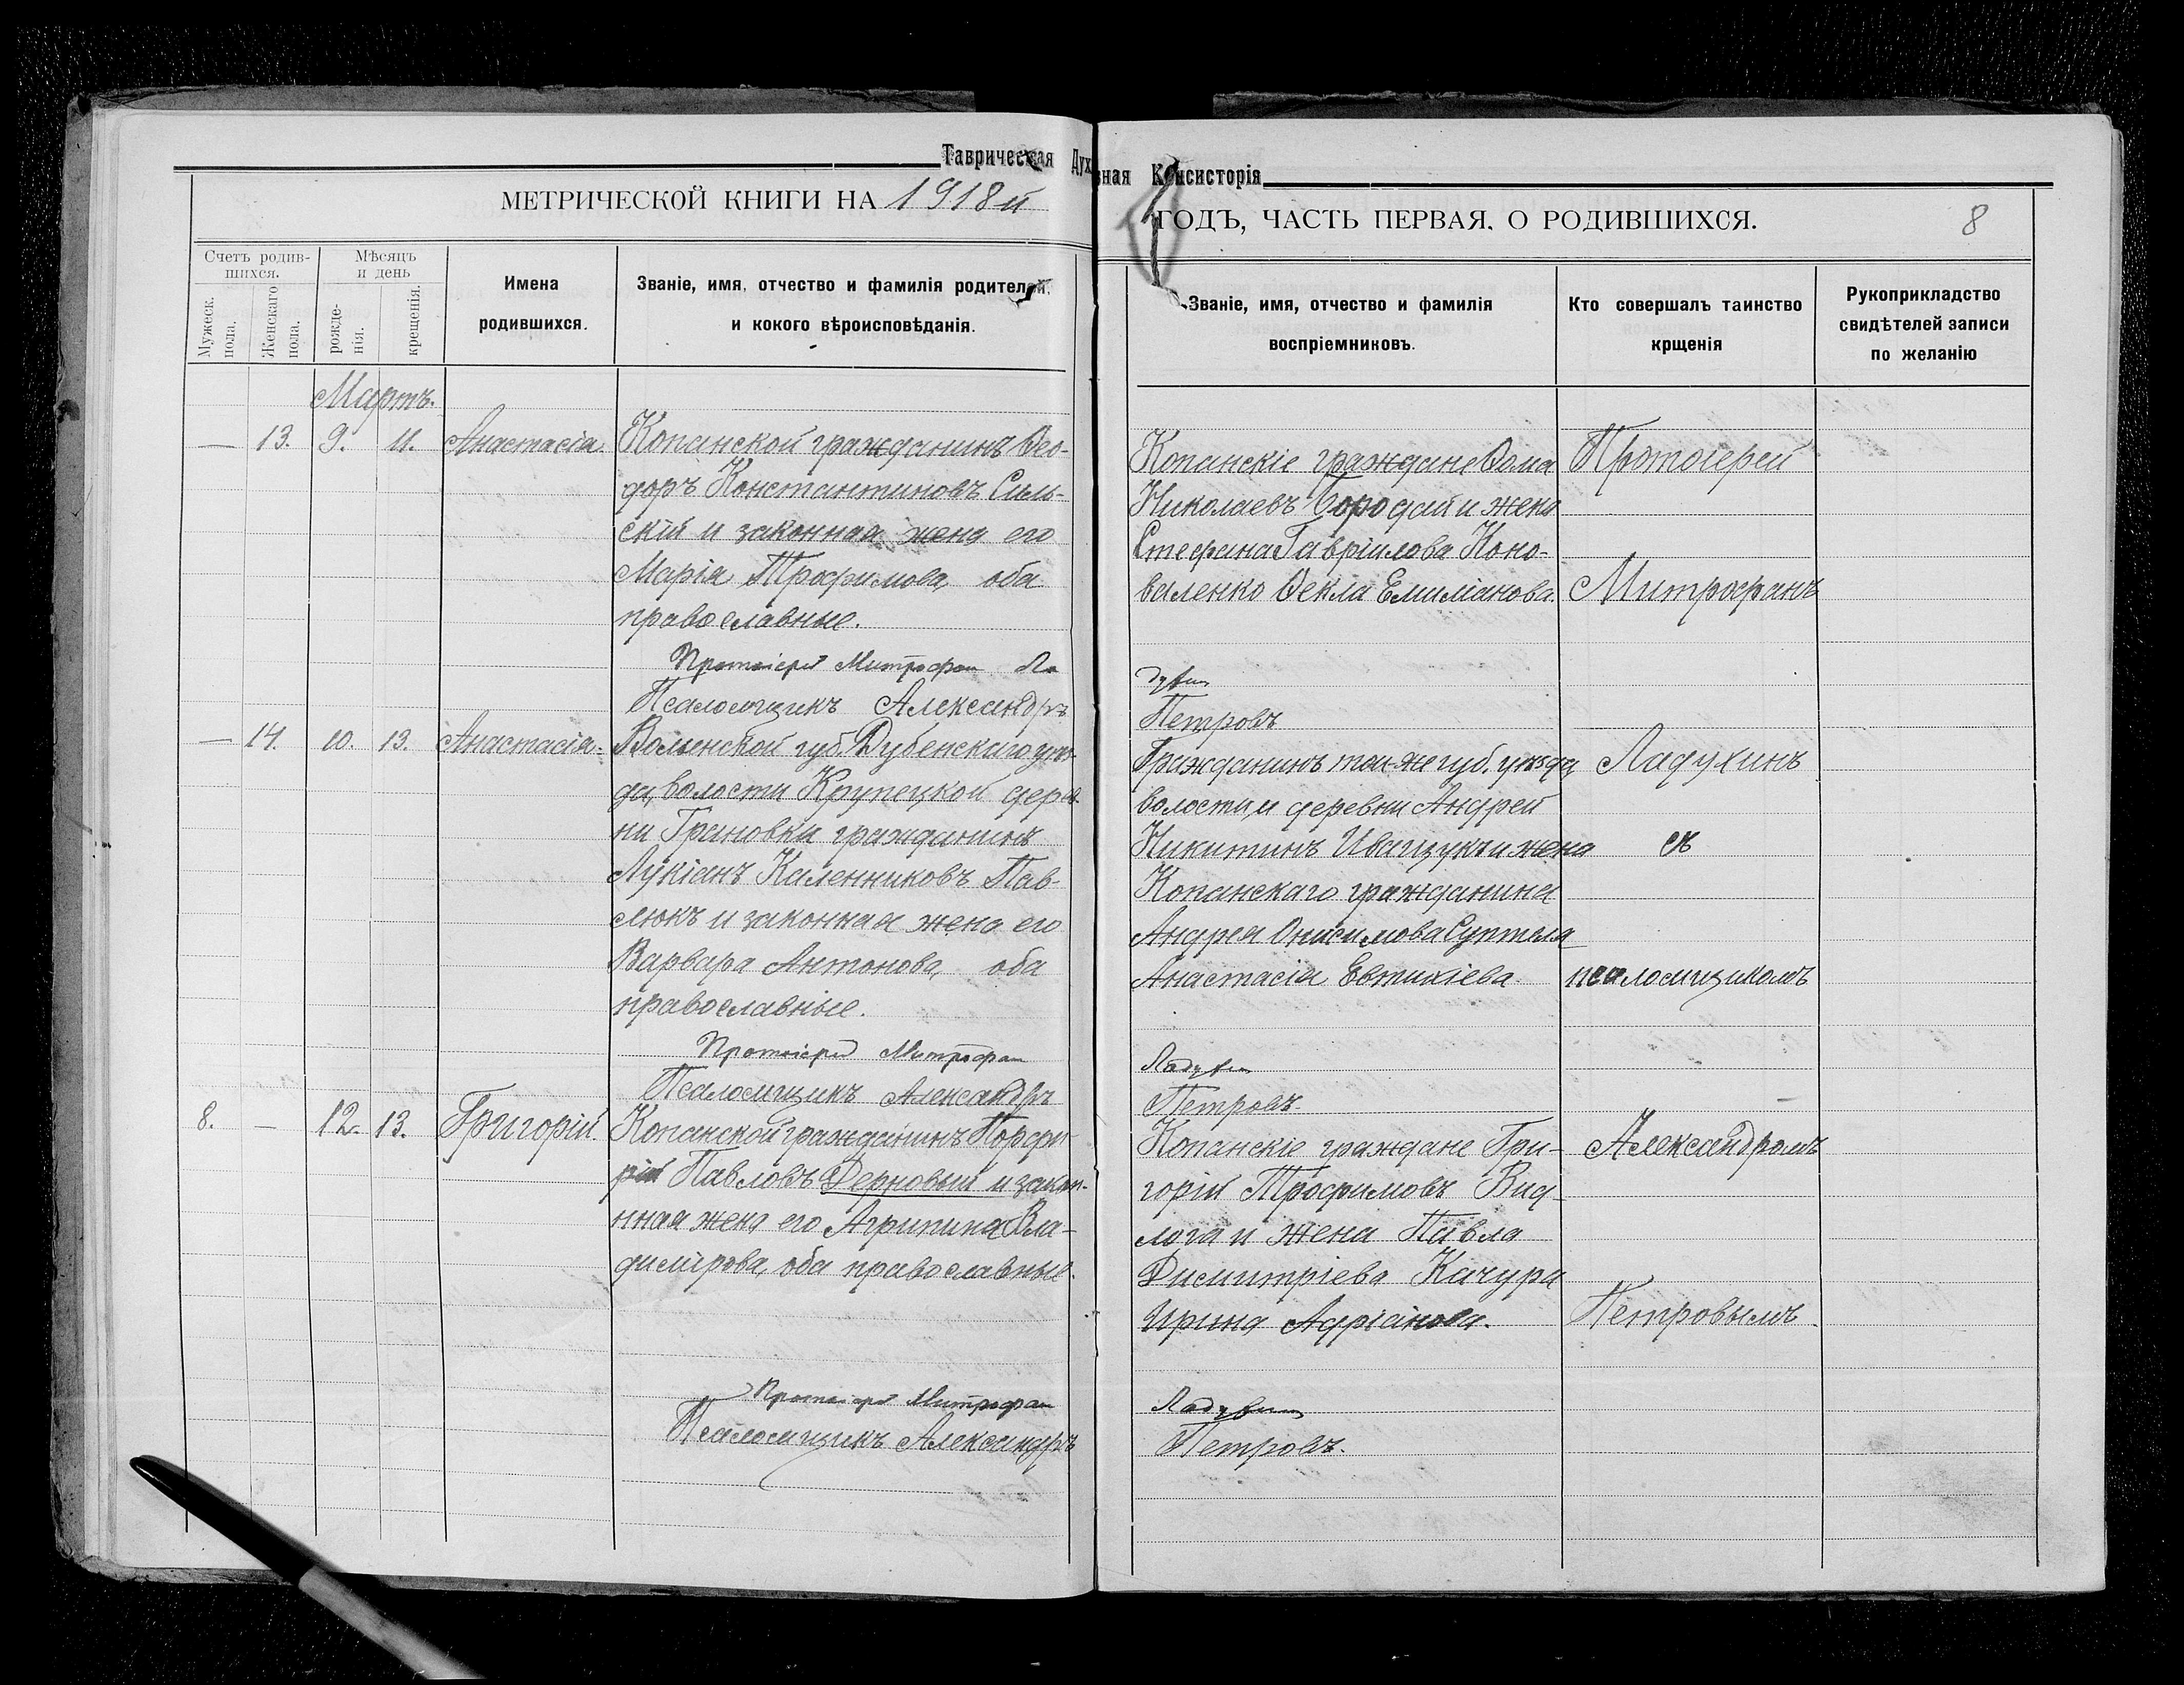 Таврическая Духовная Консисторія
МЕТРИЧЕСКОЙ КНИГИ НА 1918й
ГОДЪ, ЧАСТЬ ПЕРВАЯ, О РОДИВШИХСЯ.
8
Счетъ родив-
шихся.
Мужеск.
пола.
Женскаго
пола.
Мѣсяцъ
и день
рожде-
нія.
крещенія.
Имена
родившихся.
Званіе, имя, отчество и фамилія родителей,
и кокого вѣроисповѣданія.
Званіе, имя, отчество и фамилія
воспріемниковъ.
Кто совершалъ таинство
крщенія
Рукоприкладство
свидѣтелей записи
по желанію
Мартъ.
— 13. 9. 11. Анастасія.
Копанской гражданинъ Ѳео-
доръ Константиновъ Силь-
скій и законная жена его
Марія Трофимова, оба
православные.
Протоіерей Митрофан Ла
Псаломщикъ Александръ
Копанскіе граждане Ѳома
Николаевъ Бородай и жена
Стефана Гавріилова Коно-
валенко Ѳекла Емиліанова.
духин
Петровъ
— 14. 10. 13. Анастасія.
Волынской губ. Дубенскаго уѣз-
да, волости Крупецкой дерев-
ни Грановки гражданинъ
Лукіанъ Каленниковъ Пав-
люкъ и законная жена его
Варвара Антонова, оба
православные.
Протоіерей Митрофан
Псаломщикъ Александръ
Гражданинъ той-же губ. уѣзда
волости и деревни Андрей
Никитинъ Иващукъ и жена
Копанскаго гражданина
Андрея Онисимова Суптеля
Анастасія Евтихіева.
Ладухин
Петровъ.
8. — 12. 13. Григорій.
Копанской гражданинъ Порфи-
рій Павловъ Дерновый и закон-
нная жена его Агрипина Вла-
димірова, оба православные.
Протоіерей Митрофан
Псаломщикъ Александръ
Копанскіе граждане Гри-
горій Трофимовъ Вид-
лога и жена Павла
Димитріева Качура
Ирина Адріанова.
Ладухин
Петровъ.
Протоіерей
Митрофанъ
Ладухинъ
съ
псаломщикомъ
Александромъ
Петровымъ.